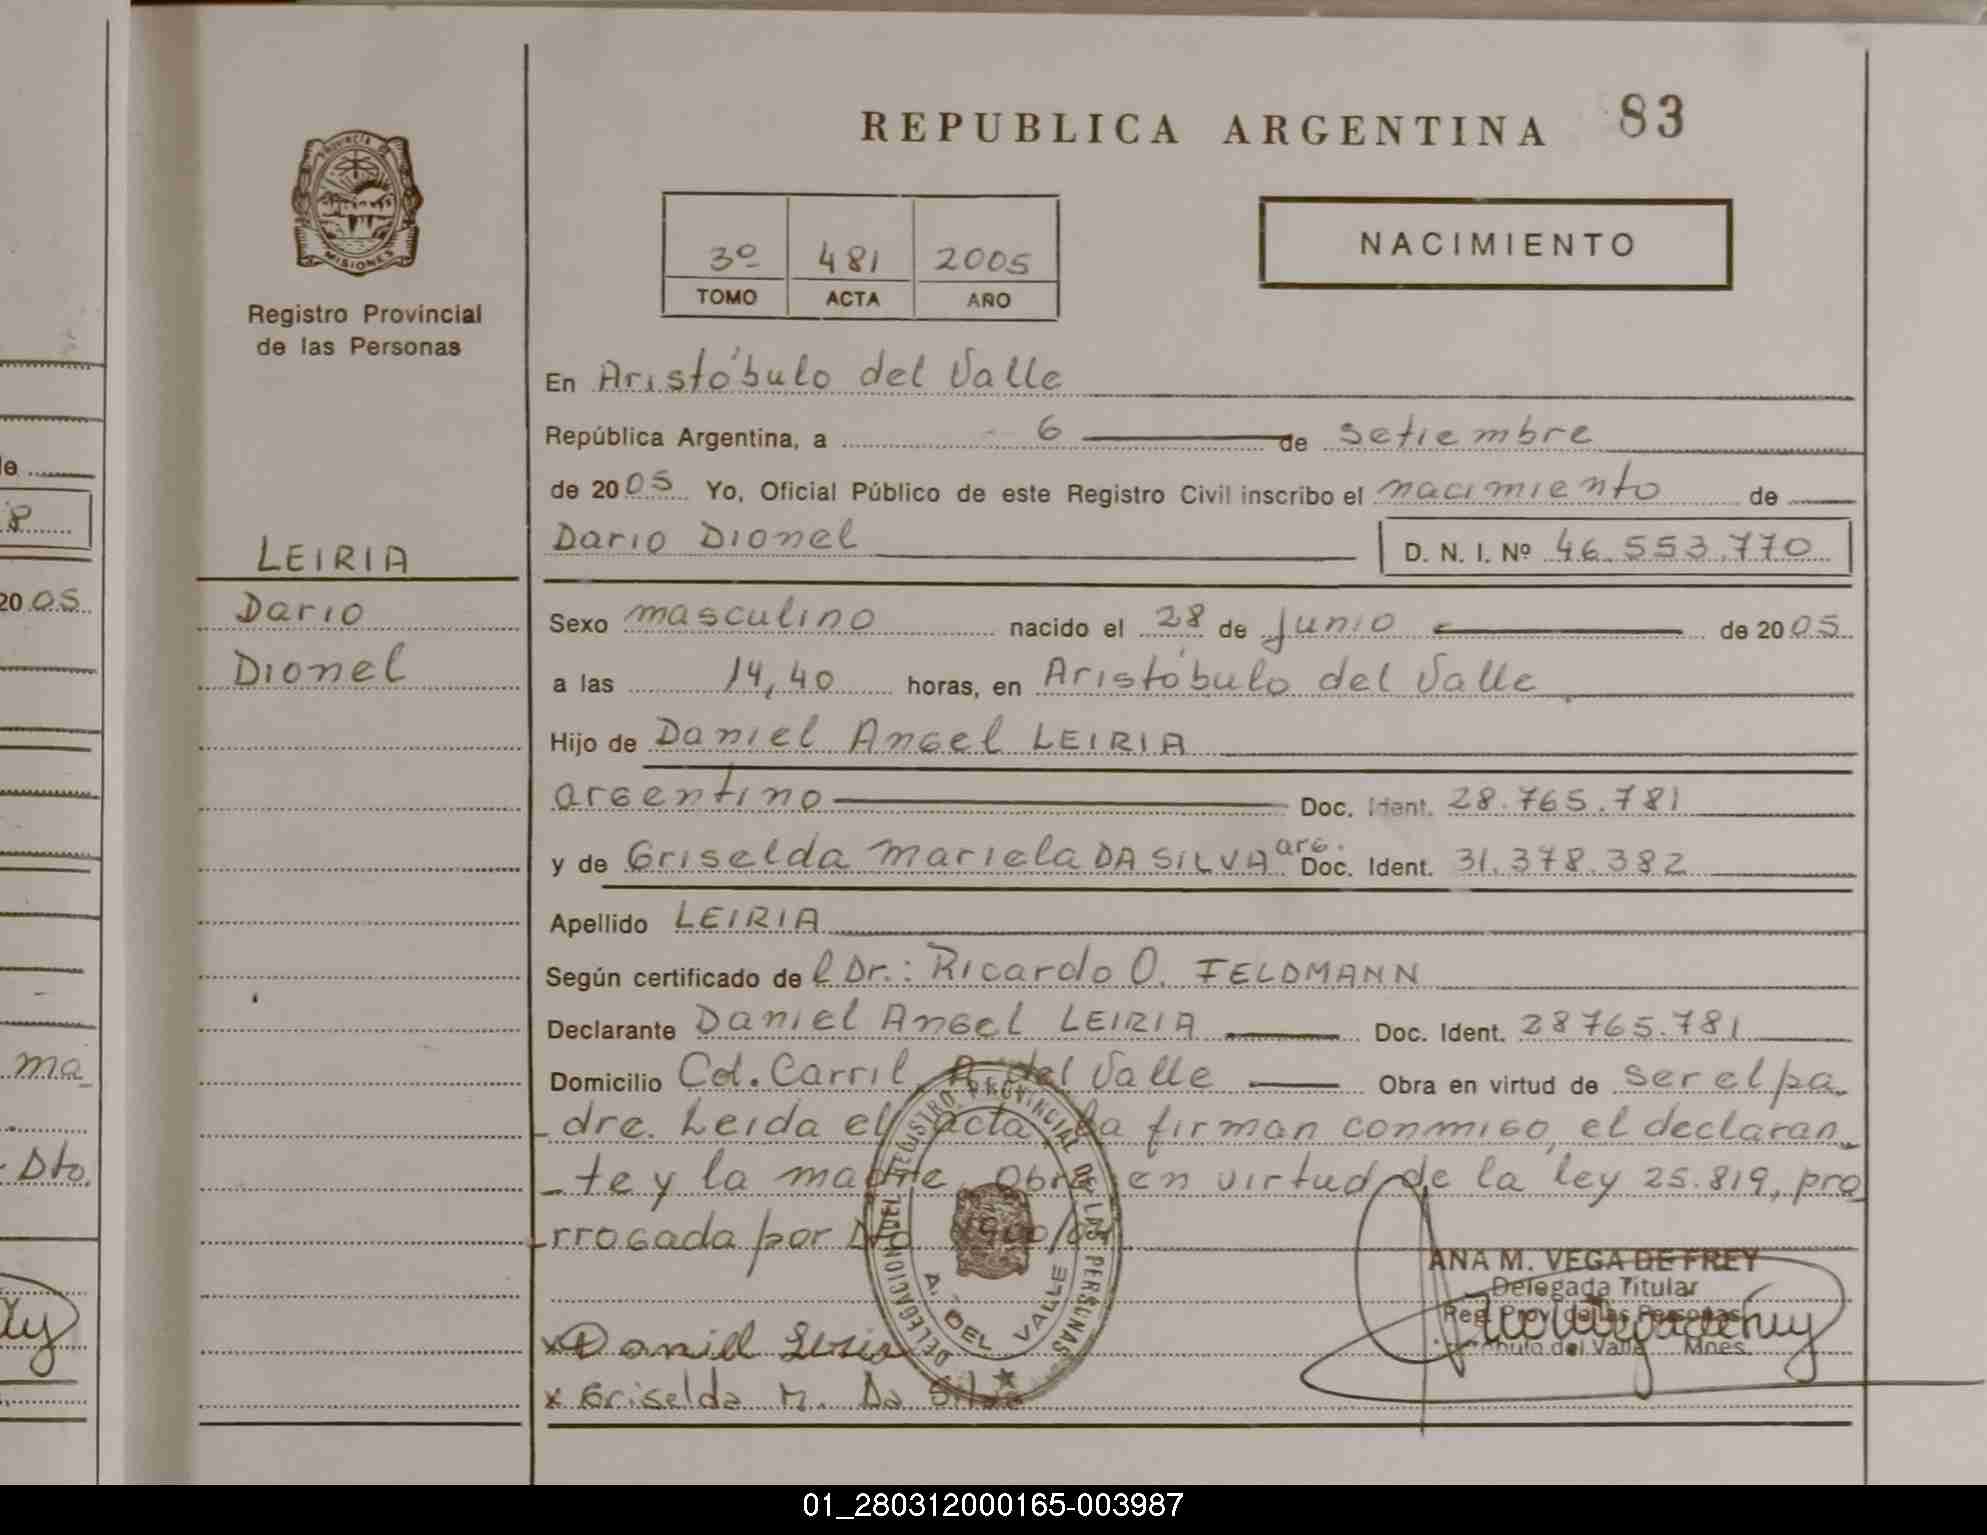 REPUBLICA ARGENTINA 83
PROVINCIA DE
MISIONES
Registro Provincial
de las Personas
3º 481 2005
TOMO ACTA AÑO
NACIMIENTO
En Aristóbulo del Valle
República Argentina, a 6 de Setiembre
de 2005 Yo, Oficial Público de este Registro Civil inscribo el nacimiento de
Dario Dionel D. N. I. Nº 46.553.770
LEIRIA
Dario
Dionel
Sexo masculino nacido el 28 de Junio de 2005
a las 14,40 horas, en Aristóbulo del Valle
Hijo de Daniel Angel LEIRIA
argentino Doc. Ident. 28.765.781
y de Griselda Mariela DA SILVA arg. Doc. Ident. 31.378.382
Apellido LEIRIA
Según certificado del Dr.: Ricardo O. FELDMANN
Declarante Daniel Angel LEIRIA Doc. Ident. 28765.781
Domicilio Col. Carril, A. del Valle Obra en virtud de ser el pa
dre. Leida el acta, la firman conmigo, el declaran
te y la madre. Obra en virtud de la ley 25.819, pro
rrogada por
DELEGACION DEL REGISTRO PROVINCIAL DE LAS PERSONAS
A. DEL VALLE
ANA M. VEGA DE FREY
Delegada Titular
Reg. Prov. de las Personas
del Valle Mnes.
x Daniel Leiria
x Griselda M. Da Silva
8
2005
ma
Dto.
01_280312000165-003987